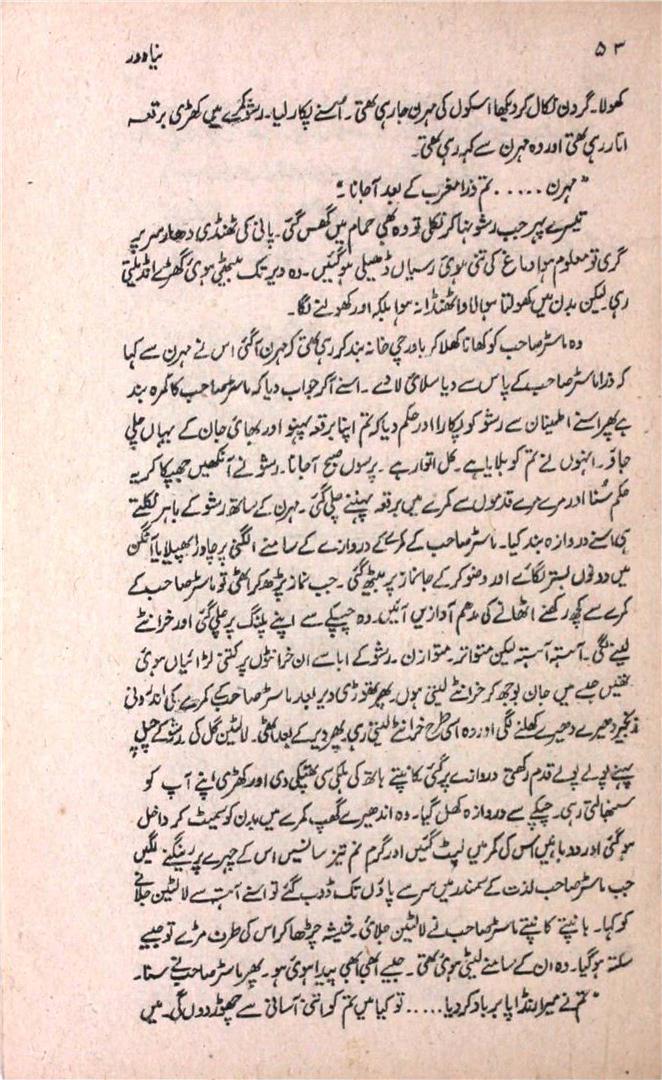 ۵۳
نیا دور
کھولا۔ گردن نکال کر دیکھا اسکول کی مہرن جا رہی تھی۔ اُسنے پکار لیا۔ رشو کمرے میں کھڑی برقعہ
اتار رہی تھی اور وہ مہرن سے کہہ رہی تھی۔
"مہرن ..... تم ذرا مغرب کے بعد آجانا۔"
تیسرے پہر جب رشو نہا کر نکلی تو وہ بھی حمام میں گھس گئی۔ پانی کی ٹھنڈی دھار سر پر
گری تو معلوم ہوا دماغ کی تنی ہوئی رسیاں ڈھیلی ہو گئیں۔ وہ دیر تک بیٹھی ہوئی گھڑے انڈیلتی
رہی لیکن بدن میں کھولتا ہوا لاوا ٹھنڈا نہ ہوا بلکہ اور کھولنے لگا۔
وہ ماسٹر صاحب کو کھانا کھلا کر باورچی خانہ بند کر رہی تھی کہ مہرن آگئی اس نے مہرن سے کہا
کہ ذرا ماسٹر صاحب کے پاس سے دیا سلائی لا دے۔ اسنے آکر جواب دیا کہ ماسٹر صاحب کا کمرہ بند
ہے پھر اسنے اطمینان سے رشو کو پکارا اور حکم دیا کہ تم اپنا برقعہ پہنو اور بھائی جان کے یہاں چلی
جاؤ۔ انہوں نے تم کو بلایا ہے۔ کل اتوار ہے۔ پرسوں صبح آجانا۔ رشو نے آنکھیں جھپکا کر یہ
حکم سُنا اور مرے مرے قدموں سے کمرے میں برقعہ پہننے چلی گئی۔ مہرن کے ساتھ رشو کے باہر نکلتے
ہی اسنے دروازہ بند کیا۔ ماسٹر صاحب کے کمرے کے دروازے کے سامنے الگنی پر چادر پھیلایا آنگن
میں دونوں بستر لگائے اور وضو کر کے جانماز پر بیٹھ گئی۔ جب نماز پڑھ کر اٹھی تو ماسٹر صاحب کے
کمرے سے کچھ رکھنے اٹھانے کی مدھم آوازیں آئیں۔ وہ چپکے سے اپنے پلنگ پر چلی گئی اور خراٹے
لینے لگی۔ آہستہ آہستہ لیکن متواتر۔ متوازن۔ رشو کے ابا سے ان خراٹوں پر کتنی لڑائیاں ہوئی
تھیں جیسے میں جان بوجھ کر خراٹے لیتی ہوں۔ پھر تھوڑی دیر بعد ماسٹر صاحب کے کمرے کی اندرونی
زنجیر دھیرے دھیرے کھلنے لگی اور وہ اسی طرح خراٹے لیتی رہی پھر دیر کے بعد اٹھی۔ لالٹین گل کی رشو کے چپل
پہنے پولے پولے قدم رکھتی دروازے پر گئی کانپتے ہاتھ کی ہلکی سی تھپکی دی اور کھڑی اپنے آپ کو
سمنبھالتی رہی۔ چپکے سے دروازہ کھل گیا۔ وہ اندھیرے گھپ کمرے میں بدن کو سمیٹ کر داخل
ہو گئی اور دو باہیں اس کی کمر میں لپٹ گئیں اور گرم نم تیز سانسیں اس کے چہرے پر رینگنے لگیں
جب ماسٹر صاحب لذت کے سمندر میں سر سے پاؤں تک ڈوب گئے تو اسنے آہستہ سے لالٹین جلانے
کو کہا۔ ہانپتے کانپتے ماسٹر صاحب نے لالٹین جلائی۔ شیشہ چڑھا کر اس کی طرف مڑے تو جیسے
سکتہ ہو گیا۔ وہ ان کے سامنے لیٹی ہوئی تھی۔ جیسے ابھی ابھی پیدا ہوئی ہو۔ پھر ماسٹر صاحب نے سنا۔
"تم نے میرا رنڈاپا برباد کر دیا ..... تو کیا میں تم کو اتنی آسانی سے چھوڑ دوں گی۔ میں